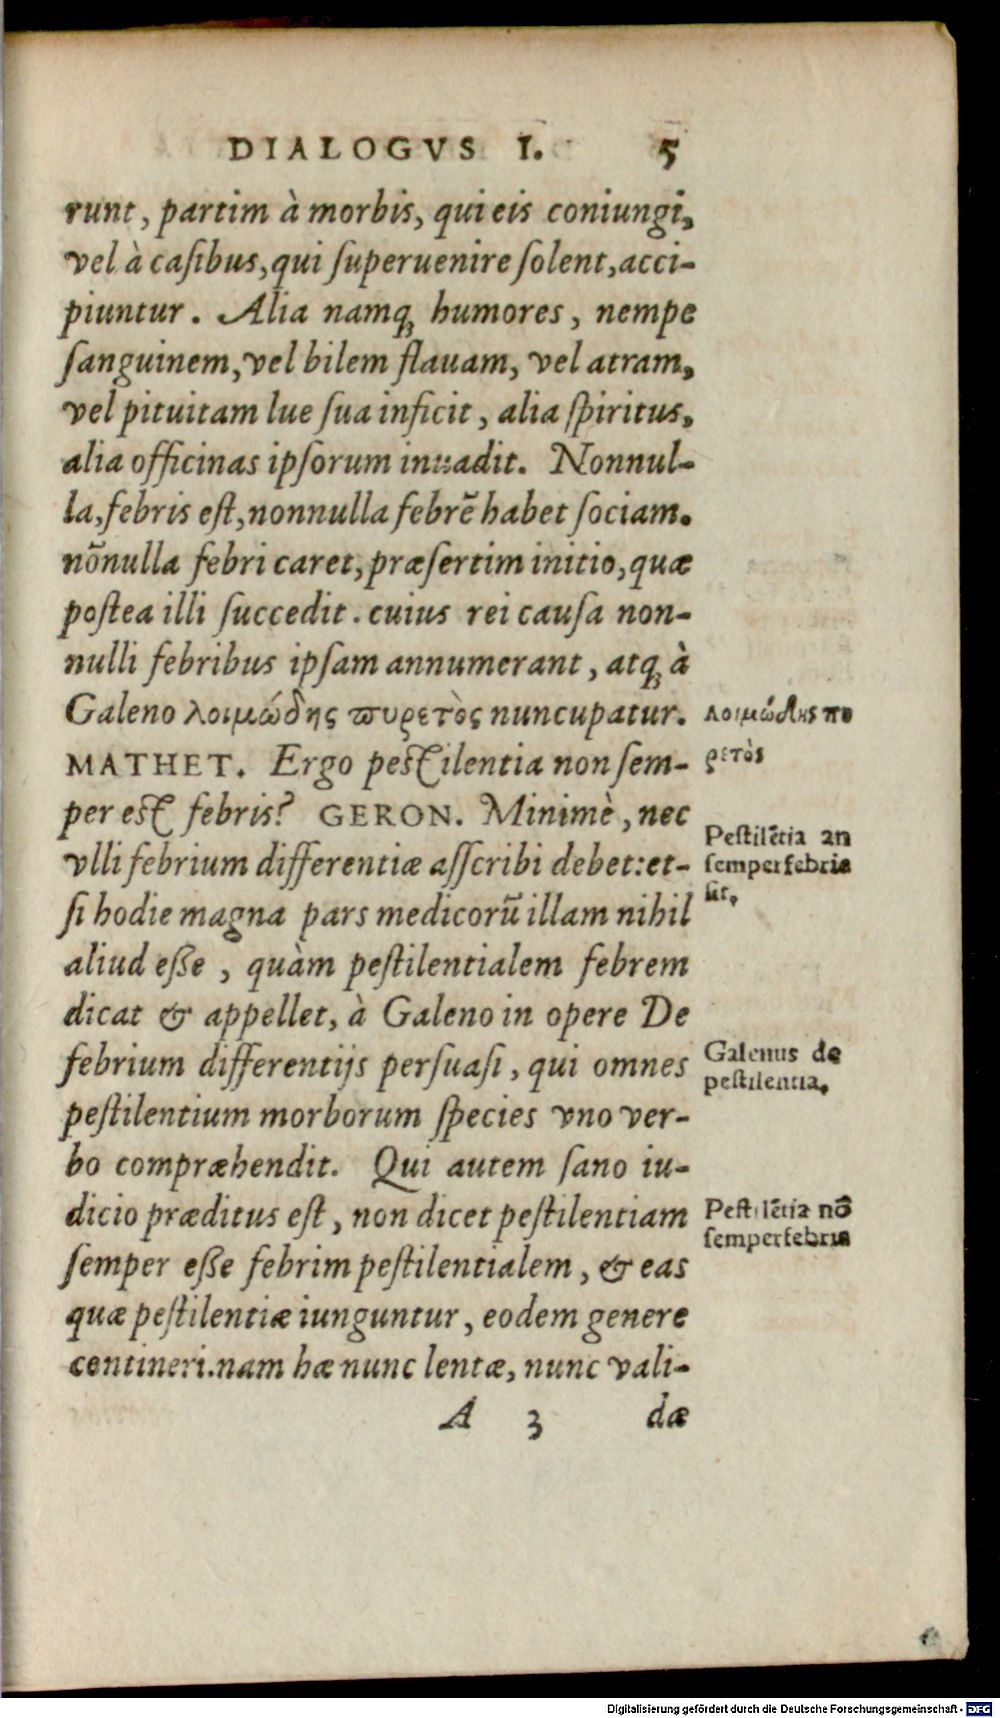 DIALOGVS I. 5
runt, partim à morbis, qui eis coniungi,
vel à caſibus, qui ſuperuenire ſolent, acci-
piuntur. Alia namq́ue humores, nempe
ſanguinem, vel bilem flauam, vel atram,
vel pituitam lue ſua inficit, alia ſpiritus,
alia officinas ipſorum inuadit. Nonnul-
la, febris eſt, nonnulla febrē habet ſociam.
nōnulla febri caret, præſertim initio, quæ
poſtea illi ſuccedit. cuius rei cauſa non-
nulli febribus ipſam annumerant, atq; à
Galeno λοιμώδης πυρετὸς nuncupatur.
MATHET. Ergo peſtilentia non ſem-
per eſt febris? GERON. Minimè, nec
vlli febrium differentiæ aſſcribi debet: et-
ſi hodie magna pars medicorū illam nihil
aliud eſſe, quàm peſtilentialem febrem
dicat & appellet, à Galeno in opere De
febrium differentijs perſuaſi, qui omnes
peſtilentium morborum ſpecies vno ver-
bo compræhendit. Qui autem ſano iu-
dicio præditus eſt, non dicet peſtilentiam
ſemper eſſe febrim peſtilentialem, & eas
quæ peſtilentiæ iunguntur, eodem genere
contineri. nam hæ nunc lentæ, nunc vali-
A 3 dæ
λοιμώδης πυ
ρετὸς
Peſtilētia an
ſemper febris
ſit.
Galenus de
peſtilentia.
Peſtilētia nō
ſemper febris
Digitalisierung gefördert durch die Deutsche Forschungsgemeinschaft - DFG